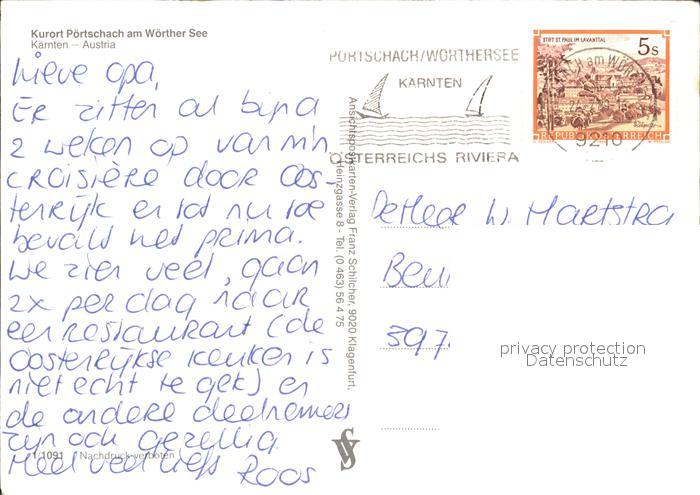 Kurort Pörtschach am Wörther See
Kärnten – Austria
Lieve opa,
Er zitten al bijna
2 weken op van m'n
croisière door Oos-
tenrijk en tot nu toe
bevalt het prima.
We zien veel, gaan
2x per dag naar
een restaurant (de
Oostenrijkse keuken is
niet echt te gek) en
de andere deelnemers
zijn ook gezellig.
Heel veel liefs
Roos
1/1091 Nachdruck verboten
Ansichtspostkarten-Verlag Franz Schilcher, 9020 Klagenfurt,
Heinzgasse 8 - Tel. (0 463) 56 4 75
PÖRTSCHACH/WÖRTHERSEE
KÄRNTEN
ÖSTERREICHS RIVIERA
STIFT ST. PAUL IM LAVANTTAL
5 S
REPUBLIK ÖSTERREICH
9210
W. Martstra
397
privacy protection
Datenschutz